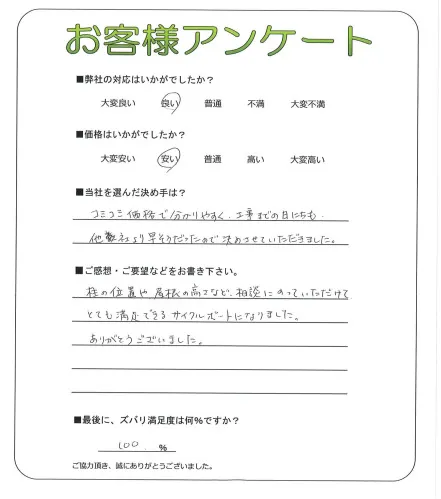 お客様アンケート
■弊社の対応はいかがでしたか？
大変良い 良い 普通 不満 大変不満
■価格はいかがでしたか？
大変安い 安い 普通 高い 大変高い
■当社を選んだ決め手は？
コミコミ価格で分かりやすく、工事までの日にちも、
他数社より早そうだったので決めさせていただきました。
■ご感想・ご要望などをお書き下さい。
柱の位置や屋根の高さなど、相談にのっていただけて
とても満足できるサイクルポートになりました。
ありがとうございました。
■最後に、ズバリ満足度は何%ですか？
100. %
ご協力頂き、誠にありがとうございました。